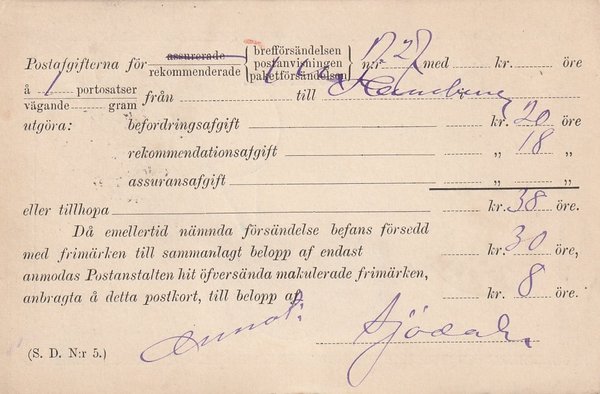 Postafgifterna för assurerade rekommenderade { brefförsändelsen postanvisningen paketförsändelsen } n:r 727 med kr. öre
å 1 portosatser
vägande gram från till Hamburg
utgöra: befordringsafgift kr. 20 öre
rekommendationsafgift „ 18 „
assuransafgift „ „
eller tillhopa kr. 38 öre.
Då emellertid nämnda försändelse befans försedd
med frimärken till sammanlagt belopp af endast kr. 30 öre,
anmodas Postanstalten hit öfversända makulerade frimärken,
anbragta å detta postkort, till belopp af kr. 8 öre.
(S. D. N:r 5.)